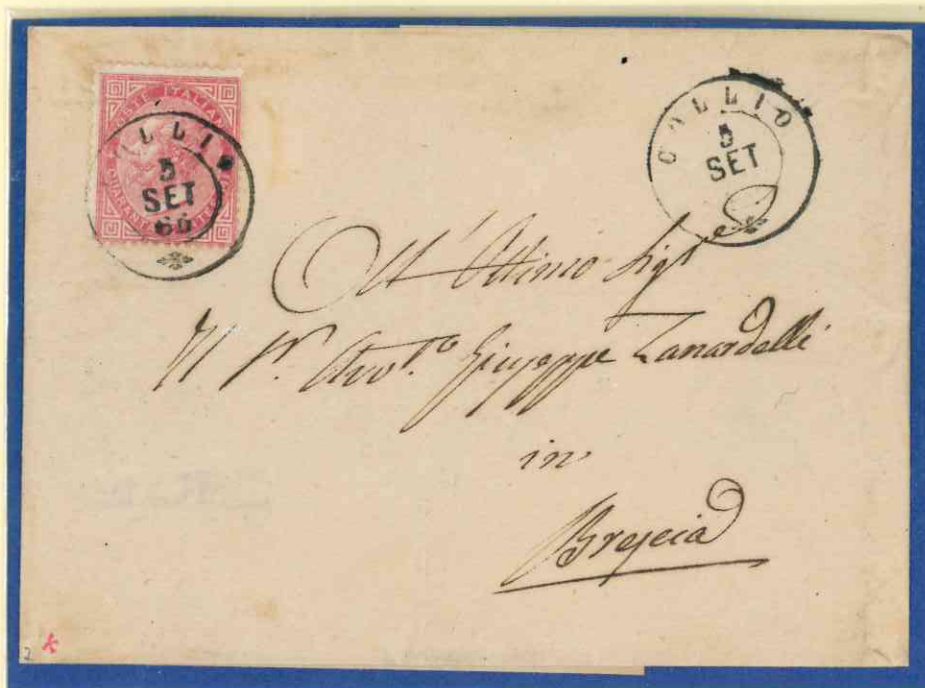 POSTE ITALIANE
QUARANTA CENTESIMI
COLLIO
5
SET
66
COLLIO
5
SET
All' Ottimo Sigr
Il Sr. Avvto. Giuseppe Zanardelli
in
Brescia
2